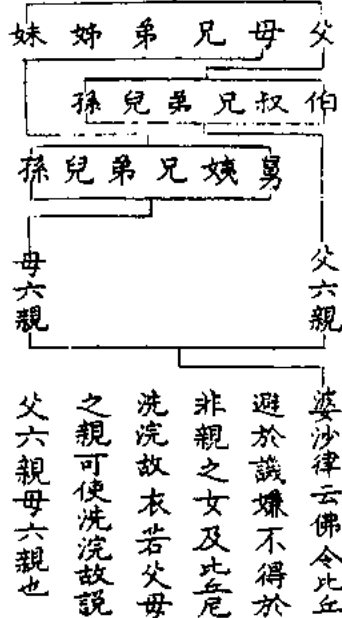 父母兄弟姊妹
伯叔兄弟兒孫
舅姨兄弟兒孫
父六親
母六親
婆沙律云佛令比丘
避於譏嫌不得於
非親之女及比丘尼
洗浣故衣若父母
之親可使洗浣故説
父六親母六親也